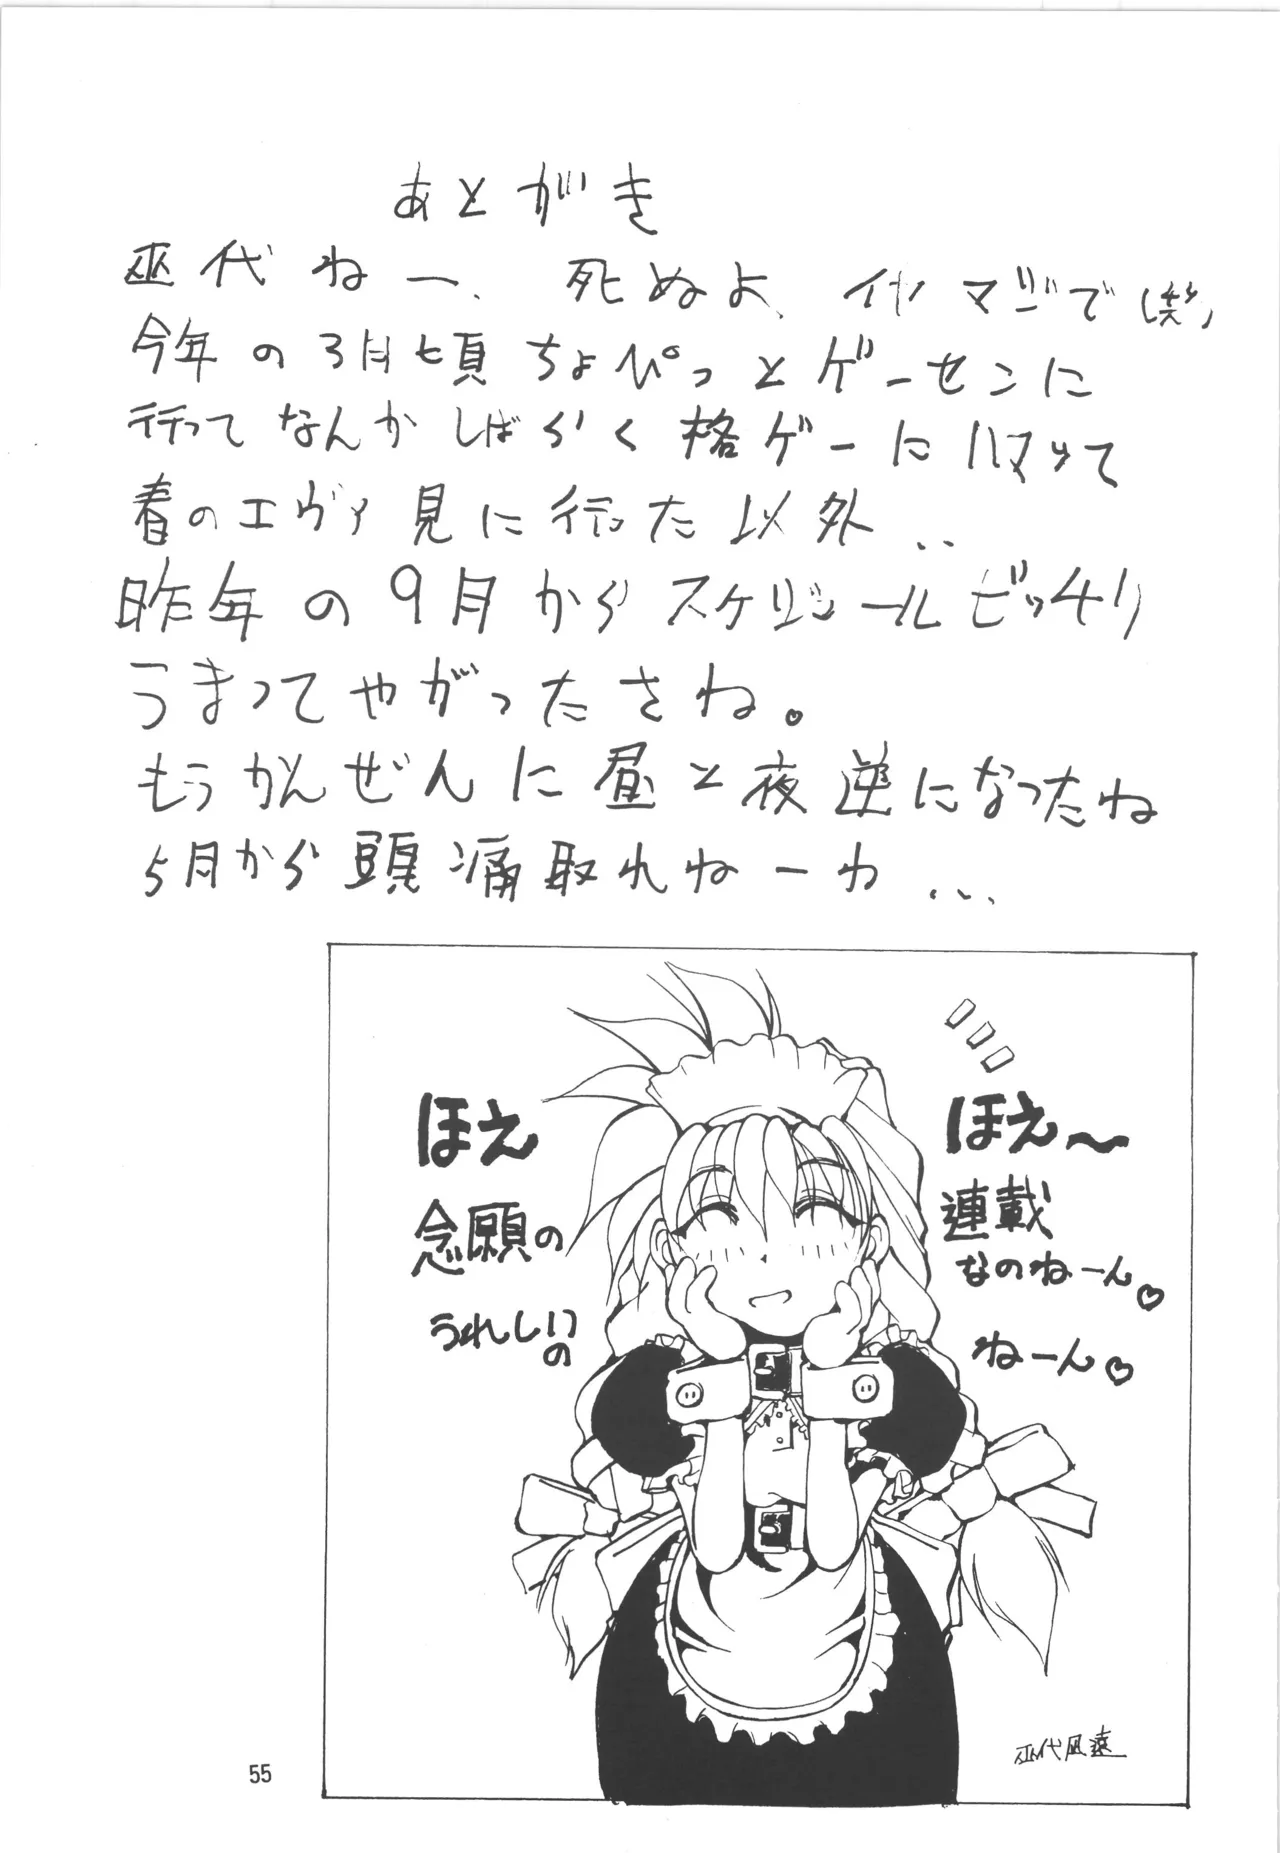 あとがき
巫代ねー、死ぬよ、イヤマジで(笑)
今年の3月頃ちょぴっとゲーセンに
行ってなんかしばらく格ゲーにハマって
春のエヴァ見に行った以外..
昨年の9月からスケジュールビッチリ
うまってやがったさね。
もうかんぜんに昼と夜逆になったね
5月から頭痛取れねーわ...
ほえ〜
連載
なのねーん♡
ねーん♡
ほえ
念願の
うれしいの
巫代凪遠
55